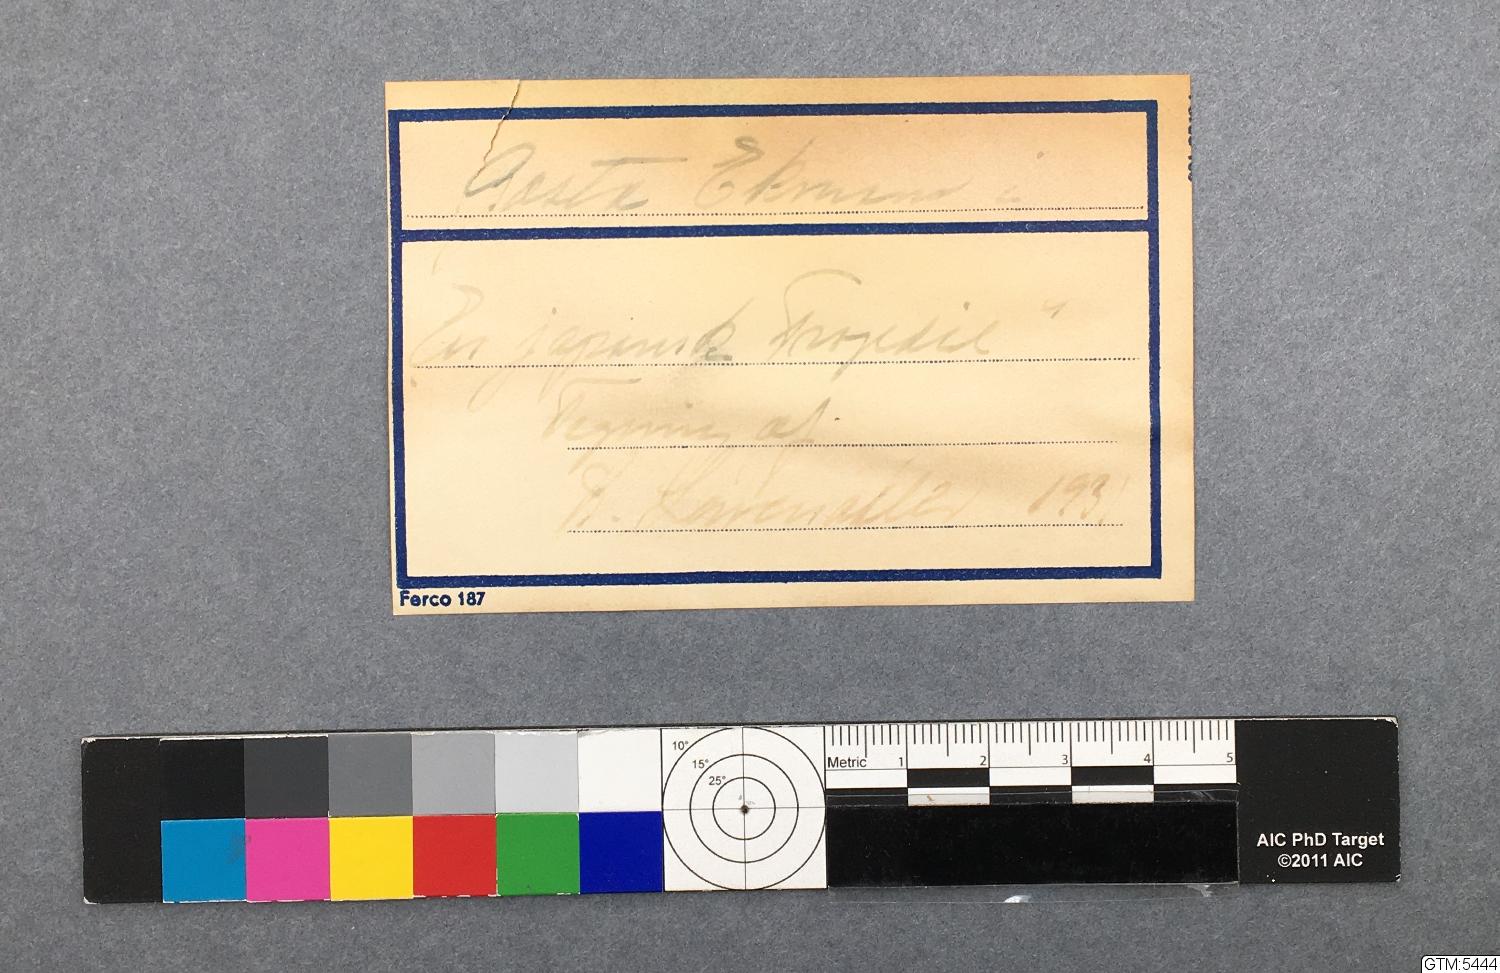 Gösta Ekman i
"En japansk Tragedie"
Tegning af
1931
Ferco 187
10°
15°
25°
Metric 1 2 3 4 5
AIC PhD Target
©2011 AIC
GTM:5444